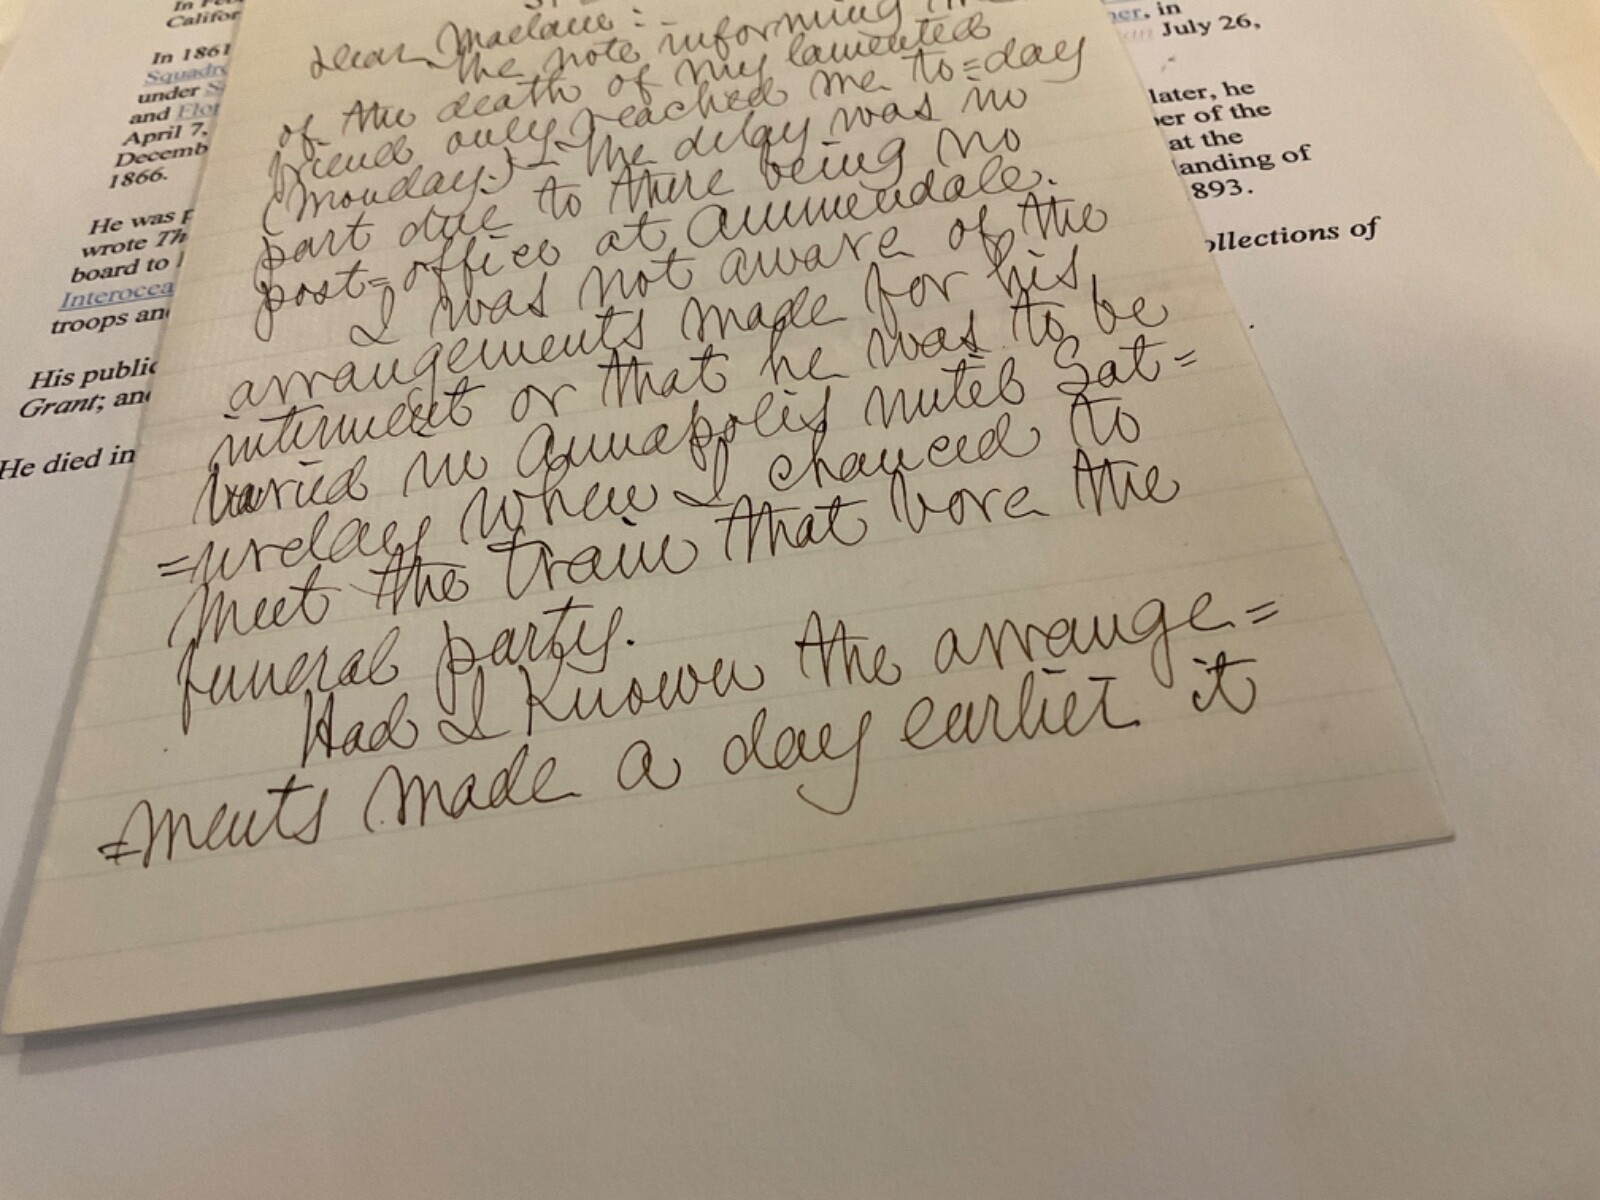 In
Califor
In 1861
Squadr
under S
and Flor
April 7,
Decemb
1866.
He was p
wrote Th
board to
Interocea
troops an
His public
Grant; an
He died in
Dear Madam:
The note informing
of the death of my lamented
friend only reached me to=day
(Monday.) The delay was in
part due to there being no
post=office at Ammendale.
I was not aware of the
arrangements made for his
interment or that he was to be
buried in Annapolis until Sat=
=urday when I chanced to
meet the train that bore the
funeral party.
Had I known the arrange=
=ments made a day earlier it
er, in
July 26,
later, he
er of the
at the
anding of
893.
ollections of